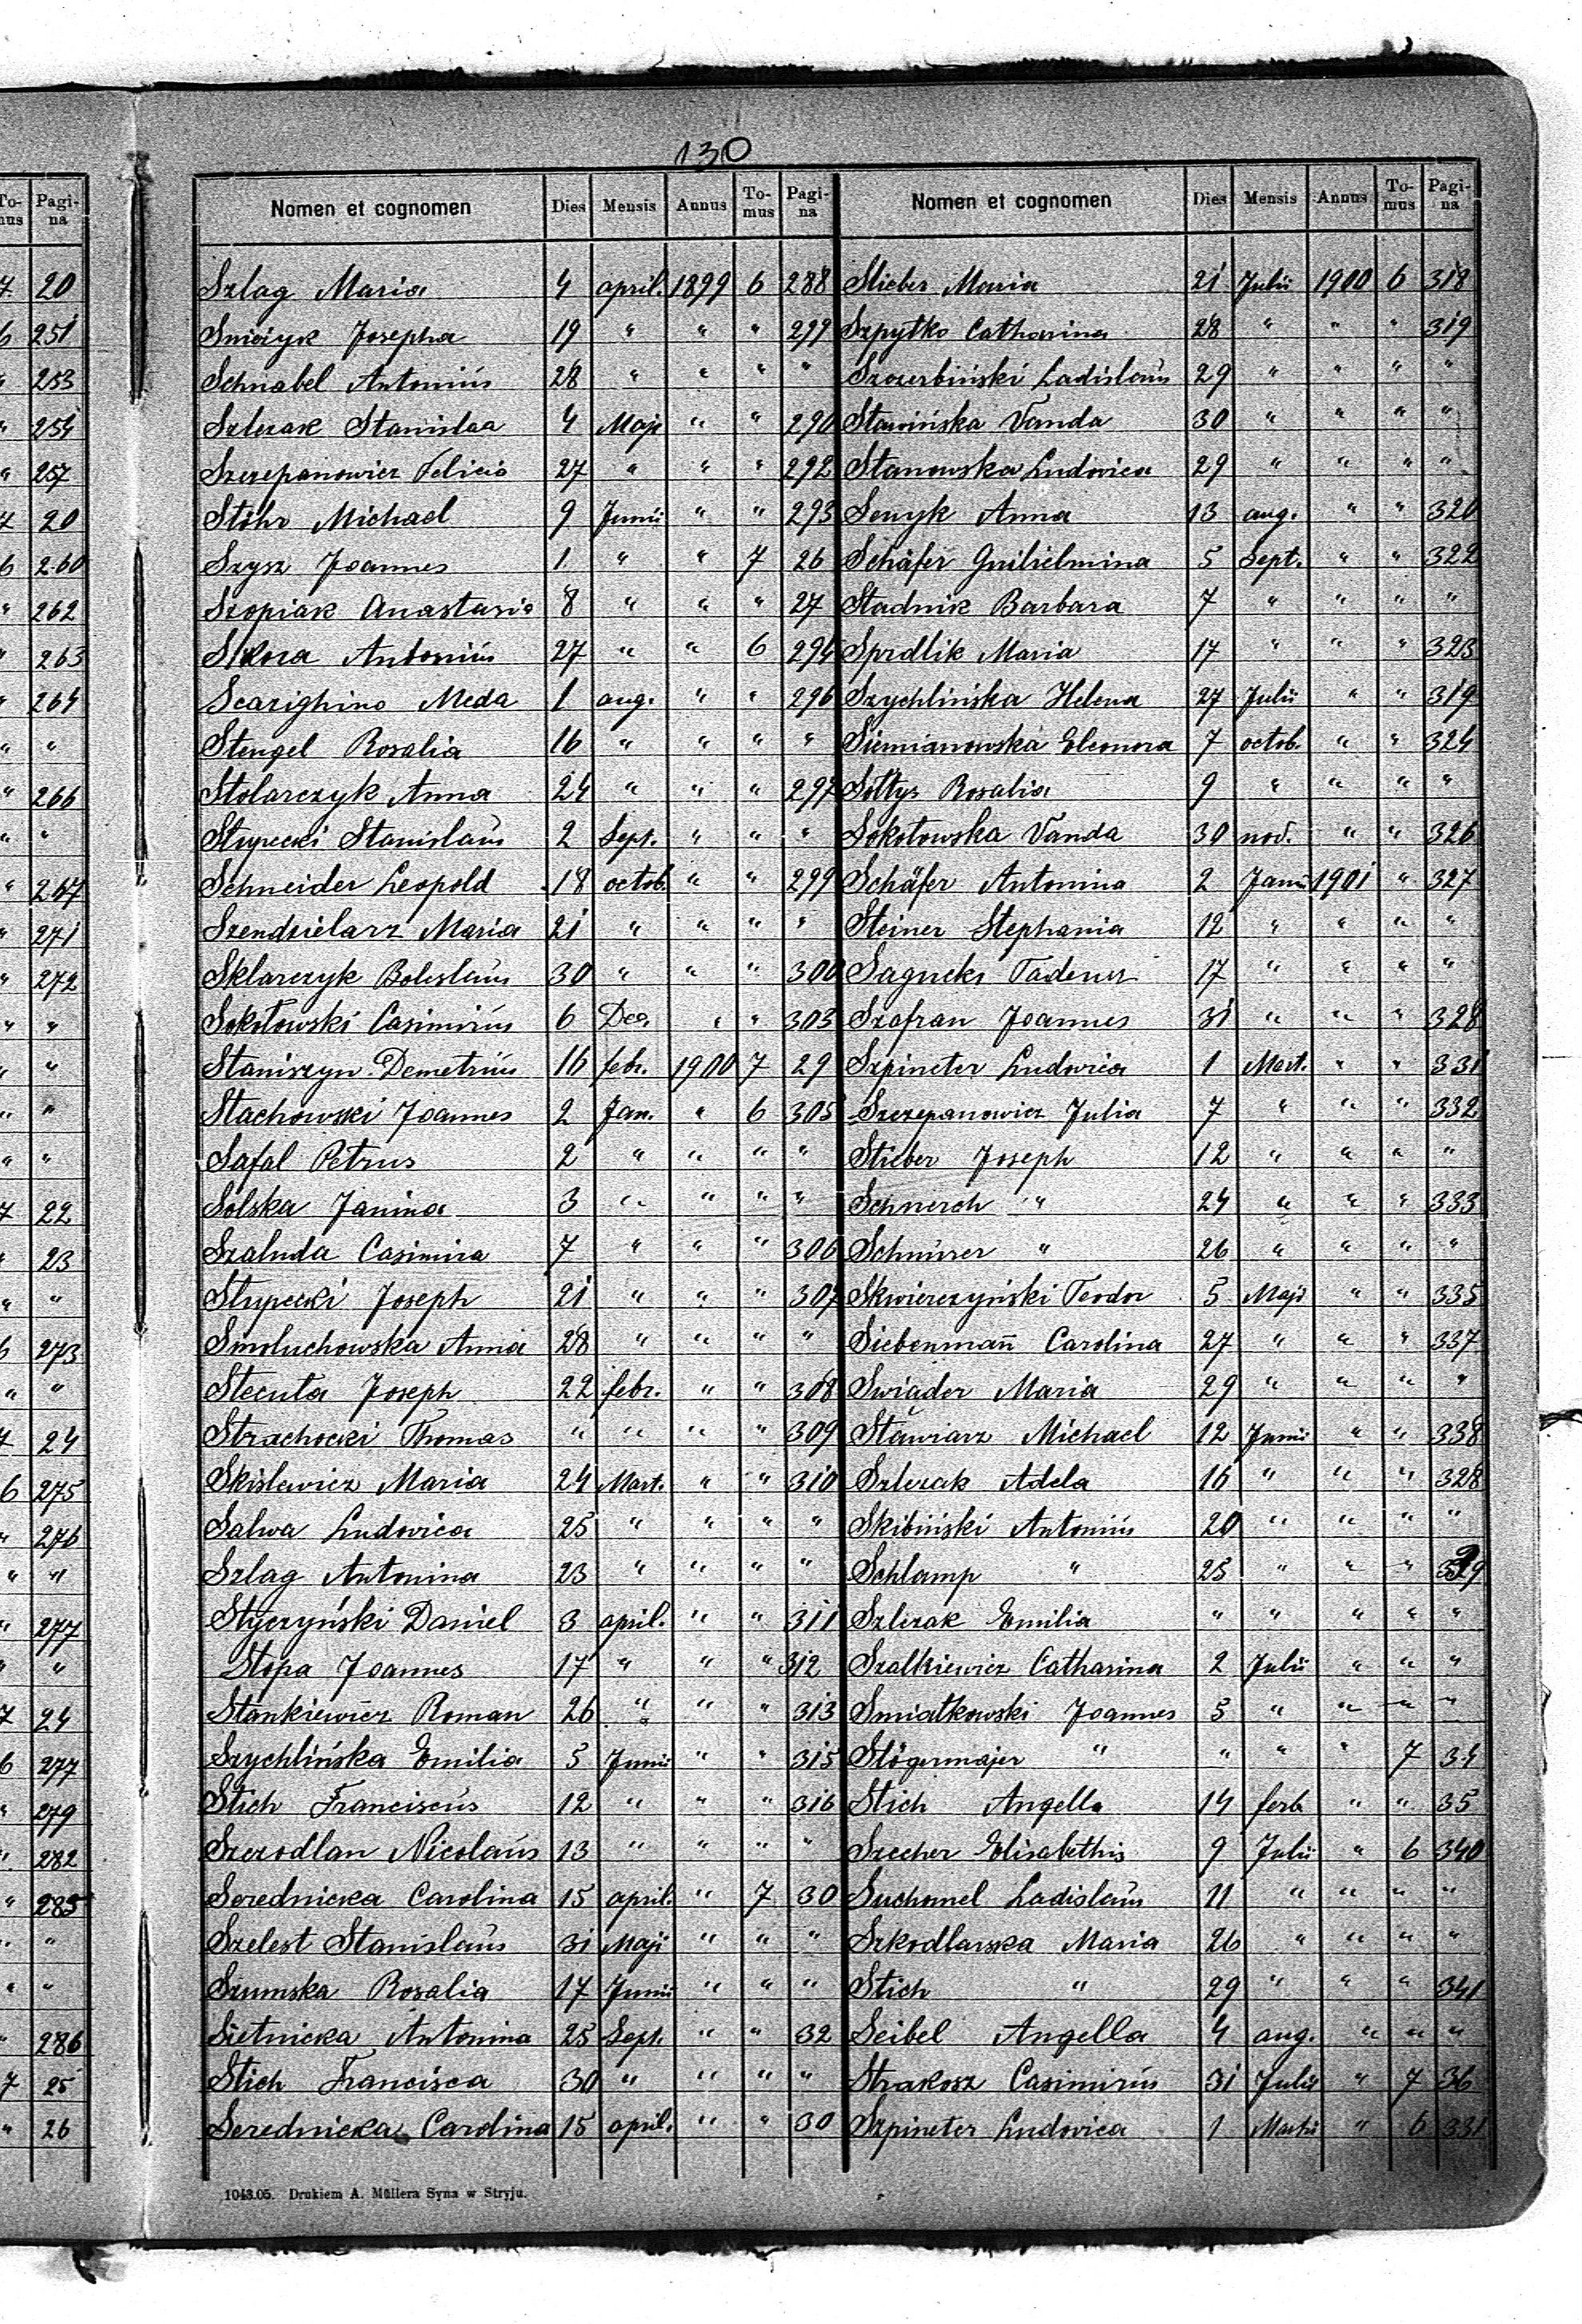 130
To-mus Pagi-na
7 20
6 251
" 253
" 254
" 257
7 20
6 260
" 262
" 263
" 264
" "
" 266
" "
" 267
" 271
" 272
" "
" "
" "
" "
7 22
" 23
" "
6 273
" "
7 24
6 275
" 276
" "
" 277
" "
7 24
6 277
" 279
" 282
" 285
" "
" "
" 286
7 25
" 26
Nomen et cognomen Dies Mensis Annus To-mus Pagi-na
Szlag Maria 4 april. 1899 6 288
Josepha 19 " " "
Schnabel Antonius 28 " " " "
Szlezak Stanislaa 4 Maji " " 290
Szczepanowicz Felicia 27 " " " 292
Stöhr Michael 9 Junii " " 293
Szysz Joannes 1 " " 7 26
Szopiak Anastasia 8 " " " 27
Sikora Antonius 27 " " 6 294
Scarighino Meda 1 aug. " " 296
Stengel Rosalia 16 " " " "
Stolarczyk Anna 24 " " " 297
Słupecki Stanislaus 2 Sept. " " "
Schneider Leopold 18 octob. " " 299
Szendzielarz Maria 21 " " " "
Sklarczyk Boleslaus 30 " " " 300
Sokołowski Casimirus 6 Dec. " " 303
Staniszyn Demetrius 16 febr. 1900 7 29
Stachowski Joannes 2 Jan. " 6 305
Safal Petrus 2 " " " "
Solska Janina 3 " " " "
Szaluda Casimira 7 " " " 306
Słupecki Joseph 21 " " " 307
Smoluchowska Anna 28 " " " "
Stecuta Joseph 22 febr. " " 308
Strachocki Thomas " " " " 309
Skislewicz Maria 24 Mart. " " 310
Salwa Ludovica 25 " " " "
Szlag Antonina 23 " " " "
Styczyński Daniel 3 april. " " 311
Stopa Joannes 17 " " " 312
Stankiewicz Roman 26 " " " 313
Szychlińska Emilia 5 Junii " " 315
Stich Franciscus 12 " " " 316
Szczodlan Nicolaus 13 " " " "
Serednicka Carolina 15 april. " 7 30
Szelest Stanislaus 31 Maji " " "
Szumska Rosalia 17 Junii " " "
Sietnicka Antonina 25 Sept. " " 32
Stich Francisca 30 " " " "
Serednicka Carolina 15 april. " " 30
Nomen et cognomen Dies Mensis Annus To-mus Pagi-na
Stieber Maria 21 Julii 1900 6 318
Szpytko Catharina 28 " " " 319
Szczerbiński Ladislaus 29 " " " "
Stawińska Vanda 30 " " " "
Stanowska Ludovica 29 " " " "
Senyk Anna 13 aug. " " 320
Schäfer Guilielmina 5 Sept. " " 322
Stadnik Barbara 7 " " " "
Sprdlik Maria 17 " " " 323
Szychlińska Helena 27 Julii " " 319
Siemianowska Eleonora 7 octob. " " 324
Sołtys Rosalia 9 " " " "
Sokołowska Vanda 30 nov. " " 326
Schäfer Antonina 2 Janu 1901 " 327
Steiner Stephania 12 " " " "
17 " " " "
Szafran Joannes 31 " " " 328
Szpineter Ludovica 1 Mart. " " 331
Szczepanowicz Julia 7 " " " 332
Stieber Joseph 12 " " " "
Schnerch " 24 " " " 333
Schnürer " 26 " " " "
Skwierczyński Teodor 5 Maji " " 335
Siebenmann Carolina 27 " " " 337
Swiader Maria 29 " " " "
Stawiarz Michael 12 Junii " " 338
Szlezak Adela 16 " " " 328
Skibiński Antonius 20 " " " "
Schlamp " 25 " " "
Szlezak Emilia " " " " "
Szalkiewicz Catharina 2 Julii " " "
Smiałkowski Joannes 5 " " " "
Stögermajer " " " " 7 34
Stich Angella 14 ferb. " " 35
Szecher Elisabethis 9 Julii " 6 340
Suchomel Ladislaus 11 " " " "
Szkodlarska Maria 26 " " " "
Stich " 29 " " " 341
Seibel Angella 4 aug. " " "
Strakosz Casimirus 31 Julii " 7 36
Szpineter Ludovica 1 Martii " 6 331
1043.05. Drukiem A. Müllera Syna w Stryju.